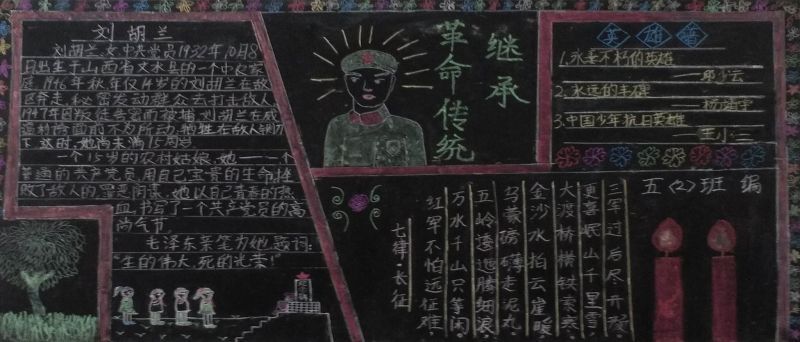 刘胡兰
刘胡兰女中共党员1932年10月8
日出生于山西省文水县的一个中农家
庭1946年秋年仅14岁的刘胡兰在敌
区奔走秘密发动群众去打击敌人
1947年因叛徒告密而被捕刘胡兰在威
逼利诱面前不为所动牺牲在敌人铡刀
下,这时,她尚未满15周岁
一个15岁的农村姑娘,她一一一个
普通的共产党员,用自己宝贵的生命挫
败了敌人的罪恶阴谋,她以自己青春的热
血,书写了一个共产党员的高
尚气节.
毛泽东亲笔为她题词:
"生的伟大,死的光荣!"
继承
革命传统
英雄谱
1.永垂不朽的英雄
——邱少云
2.永远的丰碑
——杨靖宇
3.中国少年抗日英雄
——王小二
五〈2〉班 编
七律·长征
红军不怕远征难,
万水千山只等闲.
五岭逶迤腾细浪,
乌蒙磅礴走泥丸.
金沙水拍云崖暖,
大渡桥横铁索寒.
更喜岷山千里雪,
三军过后尽开颜.